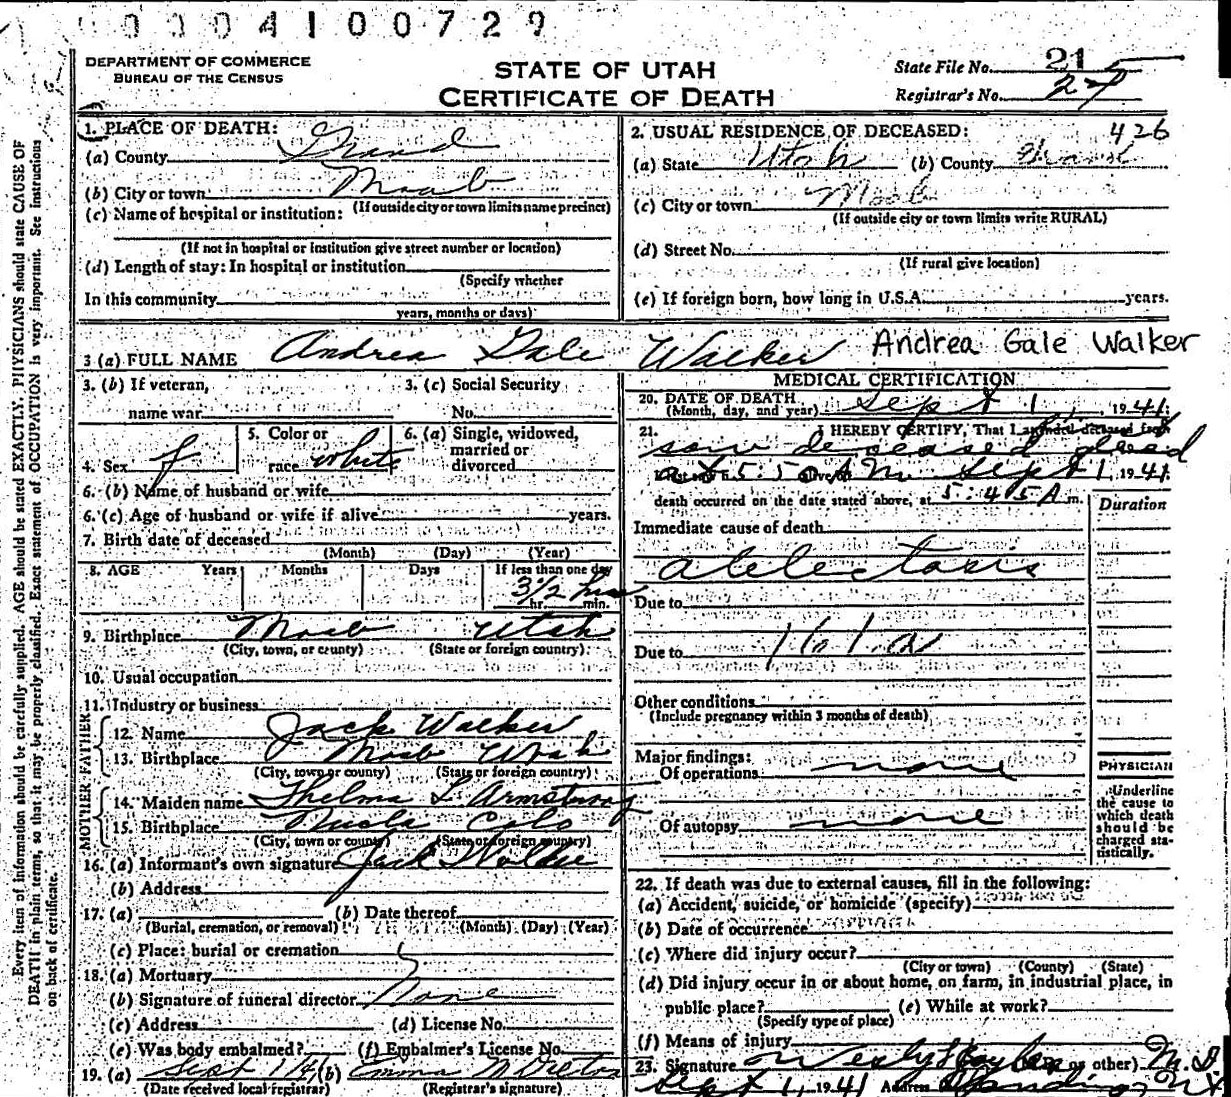 0004100729
DEPARTMENT OF COMMERCE
BUREAU OF THE CENSUS
STATE OF UTAH
CERTIFICATE OF DEATH
State File No. 21 5
Registrar's No. 27
Every item of information should be carefully supplied. AGE should be stated EXACTLY. PHYSICIANS should state CAUSE OF
DEATH in plain terms, so that it may be properly classified. Exact statement of OCCUPATION is very important. See instructions
on back of certificate.
1. PLACE OF DEATH:
(a) County Grand
(b) City or town Moab
(If outside city or town limits name precinct)
(c) Name of hospital or institution:
(If not in hospital or institution give street number or location)
(d) Length of stay: In hospital or institution
(Specify whether
In this community
years, months or days)
2. USUAL RESIDENCE OF DECEASED: 426
(a) State Utah (b) County Grand
(c) City or town Moab
(If outside city or town limits write RURAL)
(d) Street No.
(If rural give location)
(e) If foreign born, how long in U.S.A. years.
3 (a) FULL NAME Andrea Gale Walker Andrea Gale Walker
3. (b) If veteran,
name war
3. (c) Social Security
No.
4. Sex f
5. Color or
race white
6. (a) Single, widowed,
married or
divorced
6. (b) Name of husband or wife
6. (c) Age of husband or wife if alive years.
7. Birth date of deceased
(Month) (Day) (Year)
8. AGE Years Months Days If less than one day
3 1/2 hrs
hr. min.
9. Birthplace Moab Utah
(City, town, or county) (State or foreign country)
10. Usual occupation
11. Industry or business
FATHER
12. Name Jack Walker
13. Birthplace Moab Utah
(City, town or county) (State or foreign country)
MOTHER
14. Maiden name Thelma L Armstrong
15. Birthplace Nucla Colo
(City, town or county) (State or foreign country)
16. (a) Informant's own signature Jack Walker
(b) Address
17. (a) (b) Date thereof
(Burial, cremation, or removal) (Month) (Day) (Year)
(c) Place: burial or cremation
18. (a) Mortuary
(b) Signature of funeral director None
(c) Address (d) License No.
(e) Was body embalmed? (f) Embalmer's License No.
19. (a) Sept 1/41 (b) Emma
(Date received local registrar) (Registrar's signature)
MEDICAL CERTIFICATION
20. DATE OF DEATH
(Month, day, and year) Sept 1, 1941
21. I HEREBY CERTIFY, That I attended deceased from
saw deceased dead
at 5:50 A M. Sept 1, 1941
death occurred on the date stated above, at 5:45 A m.
Duration
Immediate cause of death
atelectasis
Due to
Due to 161a
Other conditions
(Include pregnancy within 3 months of death)
Major findings:
Of operations none
Of autopsy none
PHYSICIAN
Underline
the cause to
which death
should be
charged sta-
tistically.
22. If death was due to external causes, fill in the following:
(a) Accident, suicide, or homicide (specify)
(b) Date of occurrence
(c) Where did injury occur?
(City or town) (County) (State)
(d) Did injury occur in or about home, on farm, in industrial place, in
public place? (e) While at work?
(Specify type of place)
(f) Means of injury
23. Signature or other) M.D.
Sept 1, 1941 Address